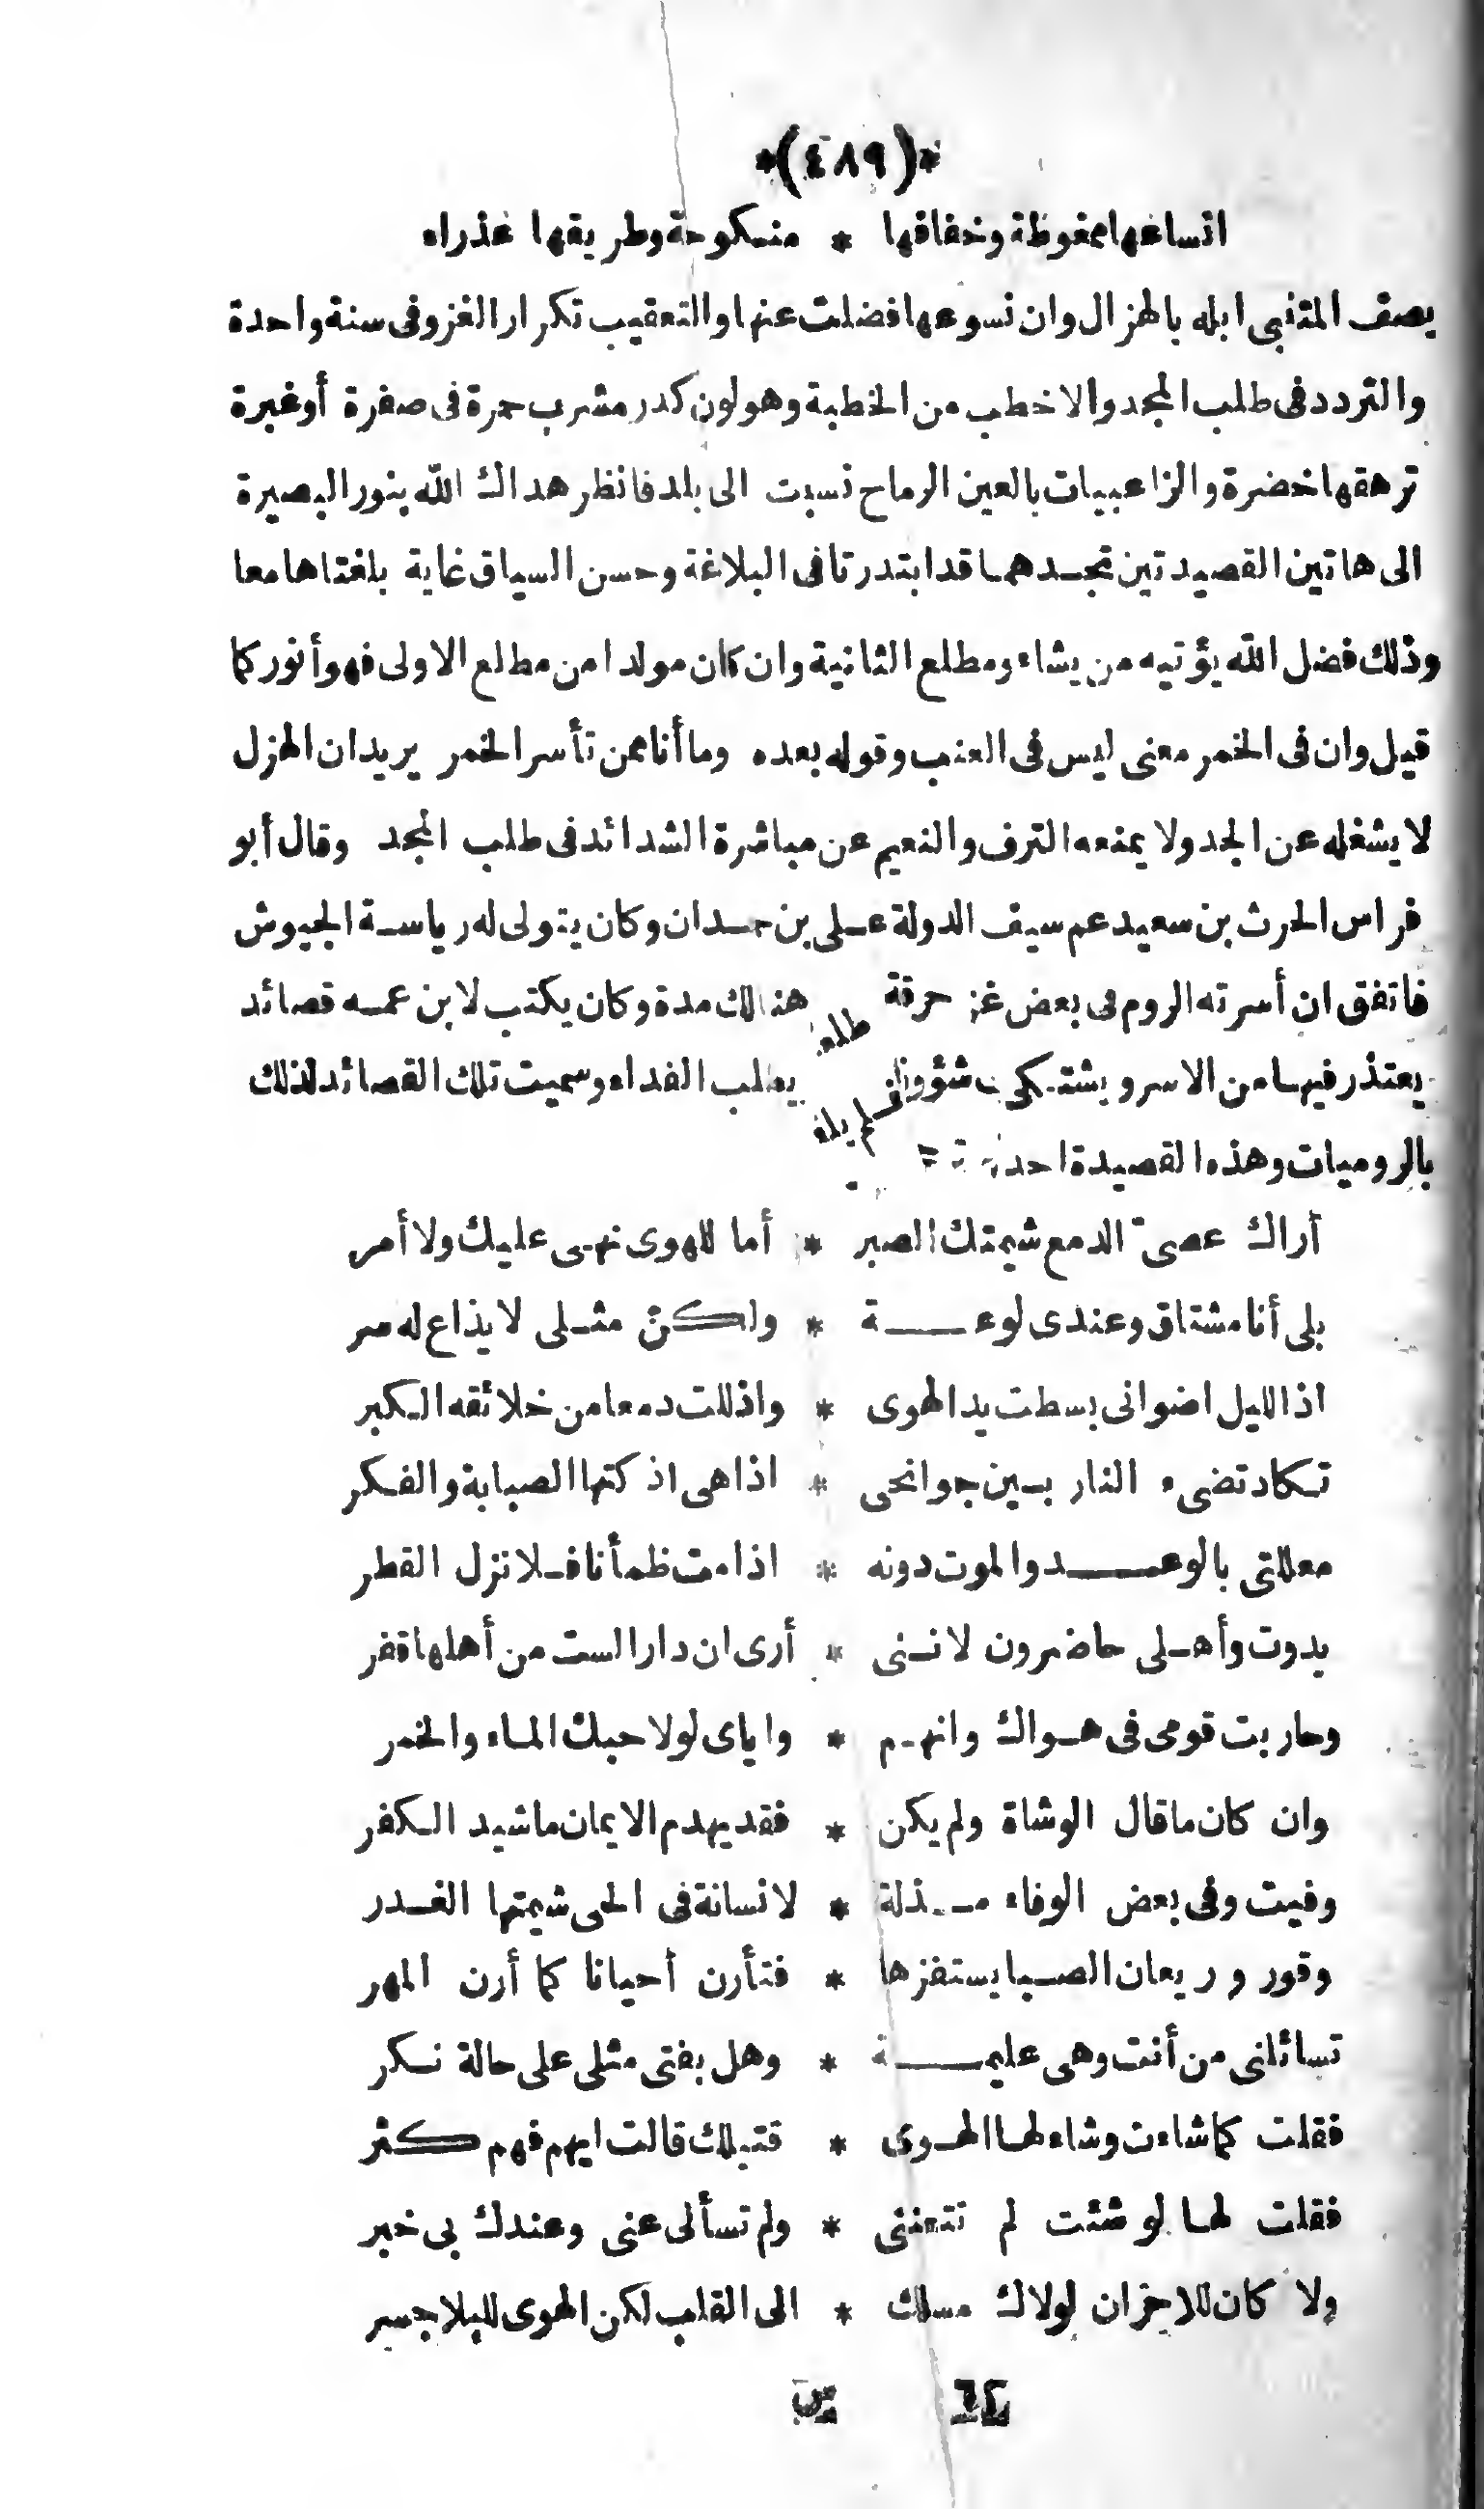 *(٤٨٩)*
انساعها ممغوظة وخفافها * منكوحة وطريقها عذراء
يصف المتنبي ابله بالهزال وان نسوعها فضلت عنها والتعقيب تكرار الغزو في سنة واحدة
والتردد في طلب المجد والاخطب من الخطبة وهو لون كدر مشرب حمرة في صفرة أو غبرة
ترهقها خضرة والزاعبيات بالعين الرماح نسبت الى بلد فانظر هداك الله بنور البصيرة
الى هاتين القصيدتين تجدهما قد ابتدرتا في البلاغة وحسن السياق غاية بلغتاها معا
وذلك فضل الله يؤتيه من يشاء ومطلع الثانية وان كان مولدا من مطلع الاولى فهو أنور كما
قيل وان في الخمر معنى ليس في العنب وقوله بعده وما أنا ممن تأسر الخمر يريد ان الهزل
لا يشغله عن الجد ولا يمنعه الترف والنعيم عن مباشرة الشدائد في طلب المجد وقال أبو
فراس الحرث بن سعيد عم سيف الدولة على بن حمدان وكان يتولى له رياسة الجيوش
فاتفق ان أسرته الروم في بعض هنالك مدة وكان يكتب لابن عمه قصائد
يعتذر فيها من الاسر ويشتكي يطلب الفداء وسميت تلك القصائد لذلك
بالروميات وهذه القصيدة
أراك عصىّ الدمع شيمتك الصبر * أما للهوى نهى عليك ولا أمر
بلى أنا مشتاق وعندى لوعة * ولكنّ مثلى لا يذاع له سر
اذا الليل اضوانى بسطت يد الهوى * واذللت دمعا من خلائقه الكبر
تكاد تضىء النار بين جوانحى * اذا هى اذكتها الصبابة والفكر
معللتى بالوعد والموت دونه * اذا مت ظمأ نا فلا نزل القطر
بدوت وأهلى حاضرون لاننى * أرى ان دارا لست من أهلها قفر
وحاربت قومى فى هواك وانهم * واياى لولا حبك الماء والخمر
وان كان ما قال الوشاة ولم يكن * فقد يهدم الايمان ما شيد الكفر
وفيت وفى بعض الوفاء مذلة * لانسانة فى الحى شيمتها الغدر
وقور وريعان الصبا يستفزها * فتأرن أحيانا كما أرن المهر
تسائلنى من أنت وهى عليمة * وهل بفتى مثلى على حالة نكر
فقلت كما شاءت وشاء لها الهوى * قتيلك قالت ايهم فهم كثر
فقلت لها لو شئت لم تتعنتى * ولم تسألى عنى وعندك بى خبر
ولا كان للاحزان لولاك مسلك * الى القلب لكن الهوى للبلا جسر